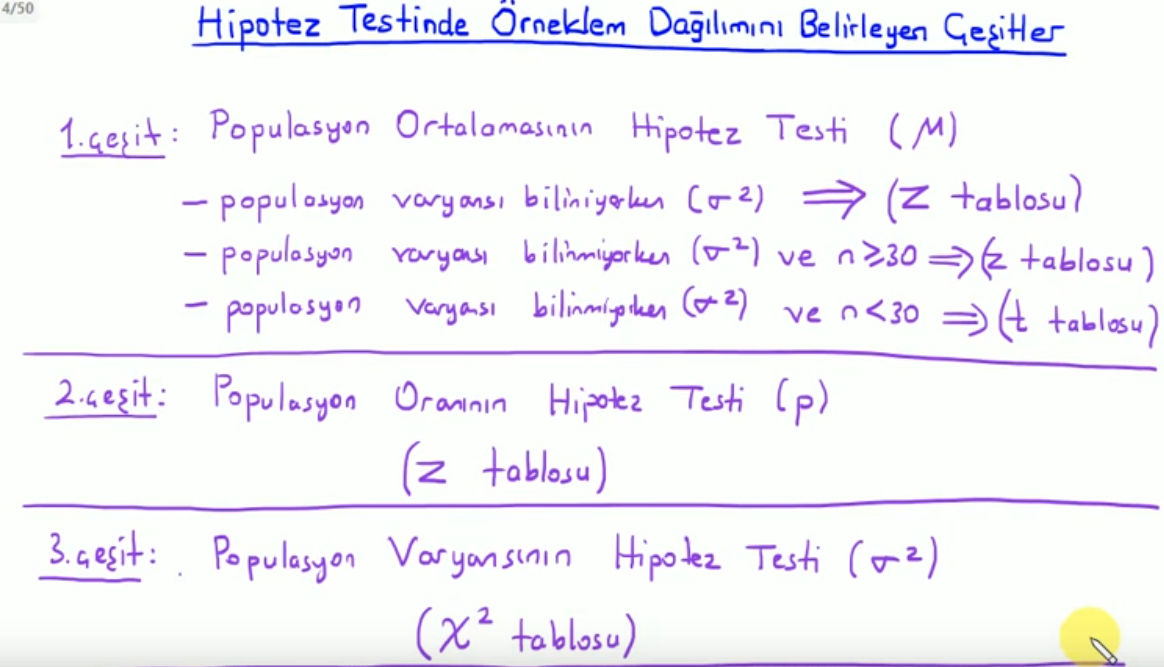 4/50
Hipotez Testinde Örneklem Dağılımını Belirleyen Çeşitler
1.çeşit: Populasyon Ortalamasının Hipotez Testi (M)
- populasyon varyansı biliniyorken (σ²) ⟹ (Z tablosu)
- populasyon varyansı bilinmiyorken (σ²) ve n≥30 ⟹ (z tablosu)
- populasyon varyası bilinmiyorken (σ²) ve n<30 ⟹ (t tablosu)
2.çeşit: Populasyon Oranının Hipotez Testi (p)
(z tablosu)
3.çeşit: Populasyon Varyansının Hipotez Testi (σ²)
(χ² tablosu)